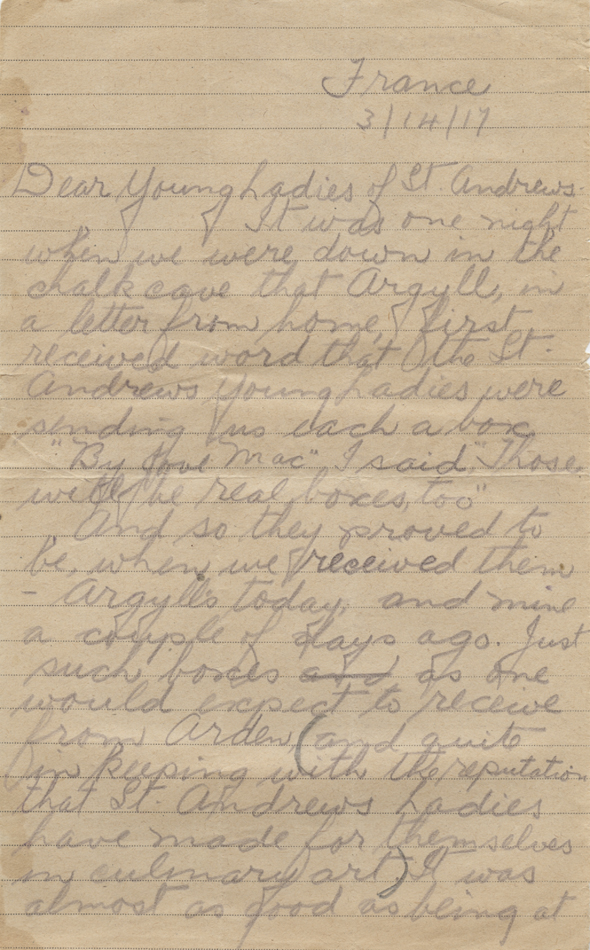 France
3/14/17
Dear Young Ladies of St. Andrews-
It was one night
when we were down in the
chalk cave that Argyll, in
a letter from home, first
received word that the St.
Andrews Young Ladies were
sending us each a box.
"By Jove Mac", I said, "Those
will be real boxes, too"
And so they proved to
be, when we received them
- Argyll's today, and mine
a couple of days ago. Just
such boxes and as one
would expect to receive
from Arden, (and quite
in keeping with the reputation
that St. Andrews Ladies
have made for themselves
in culinary art) It was
almost as good as being at